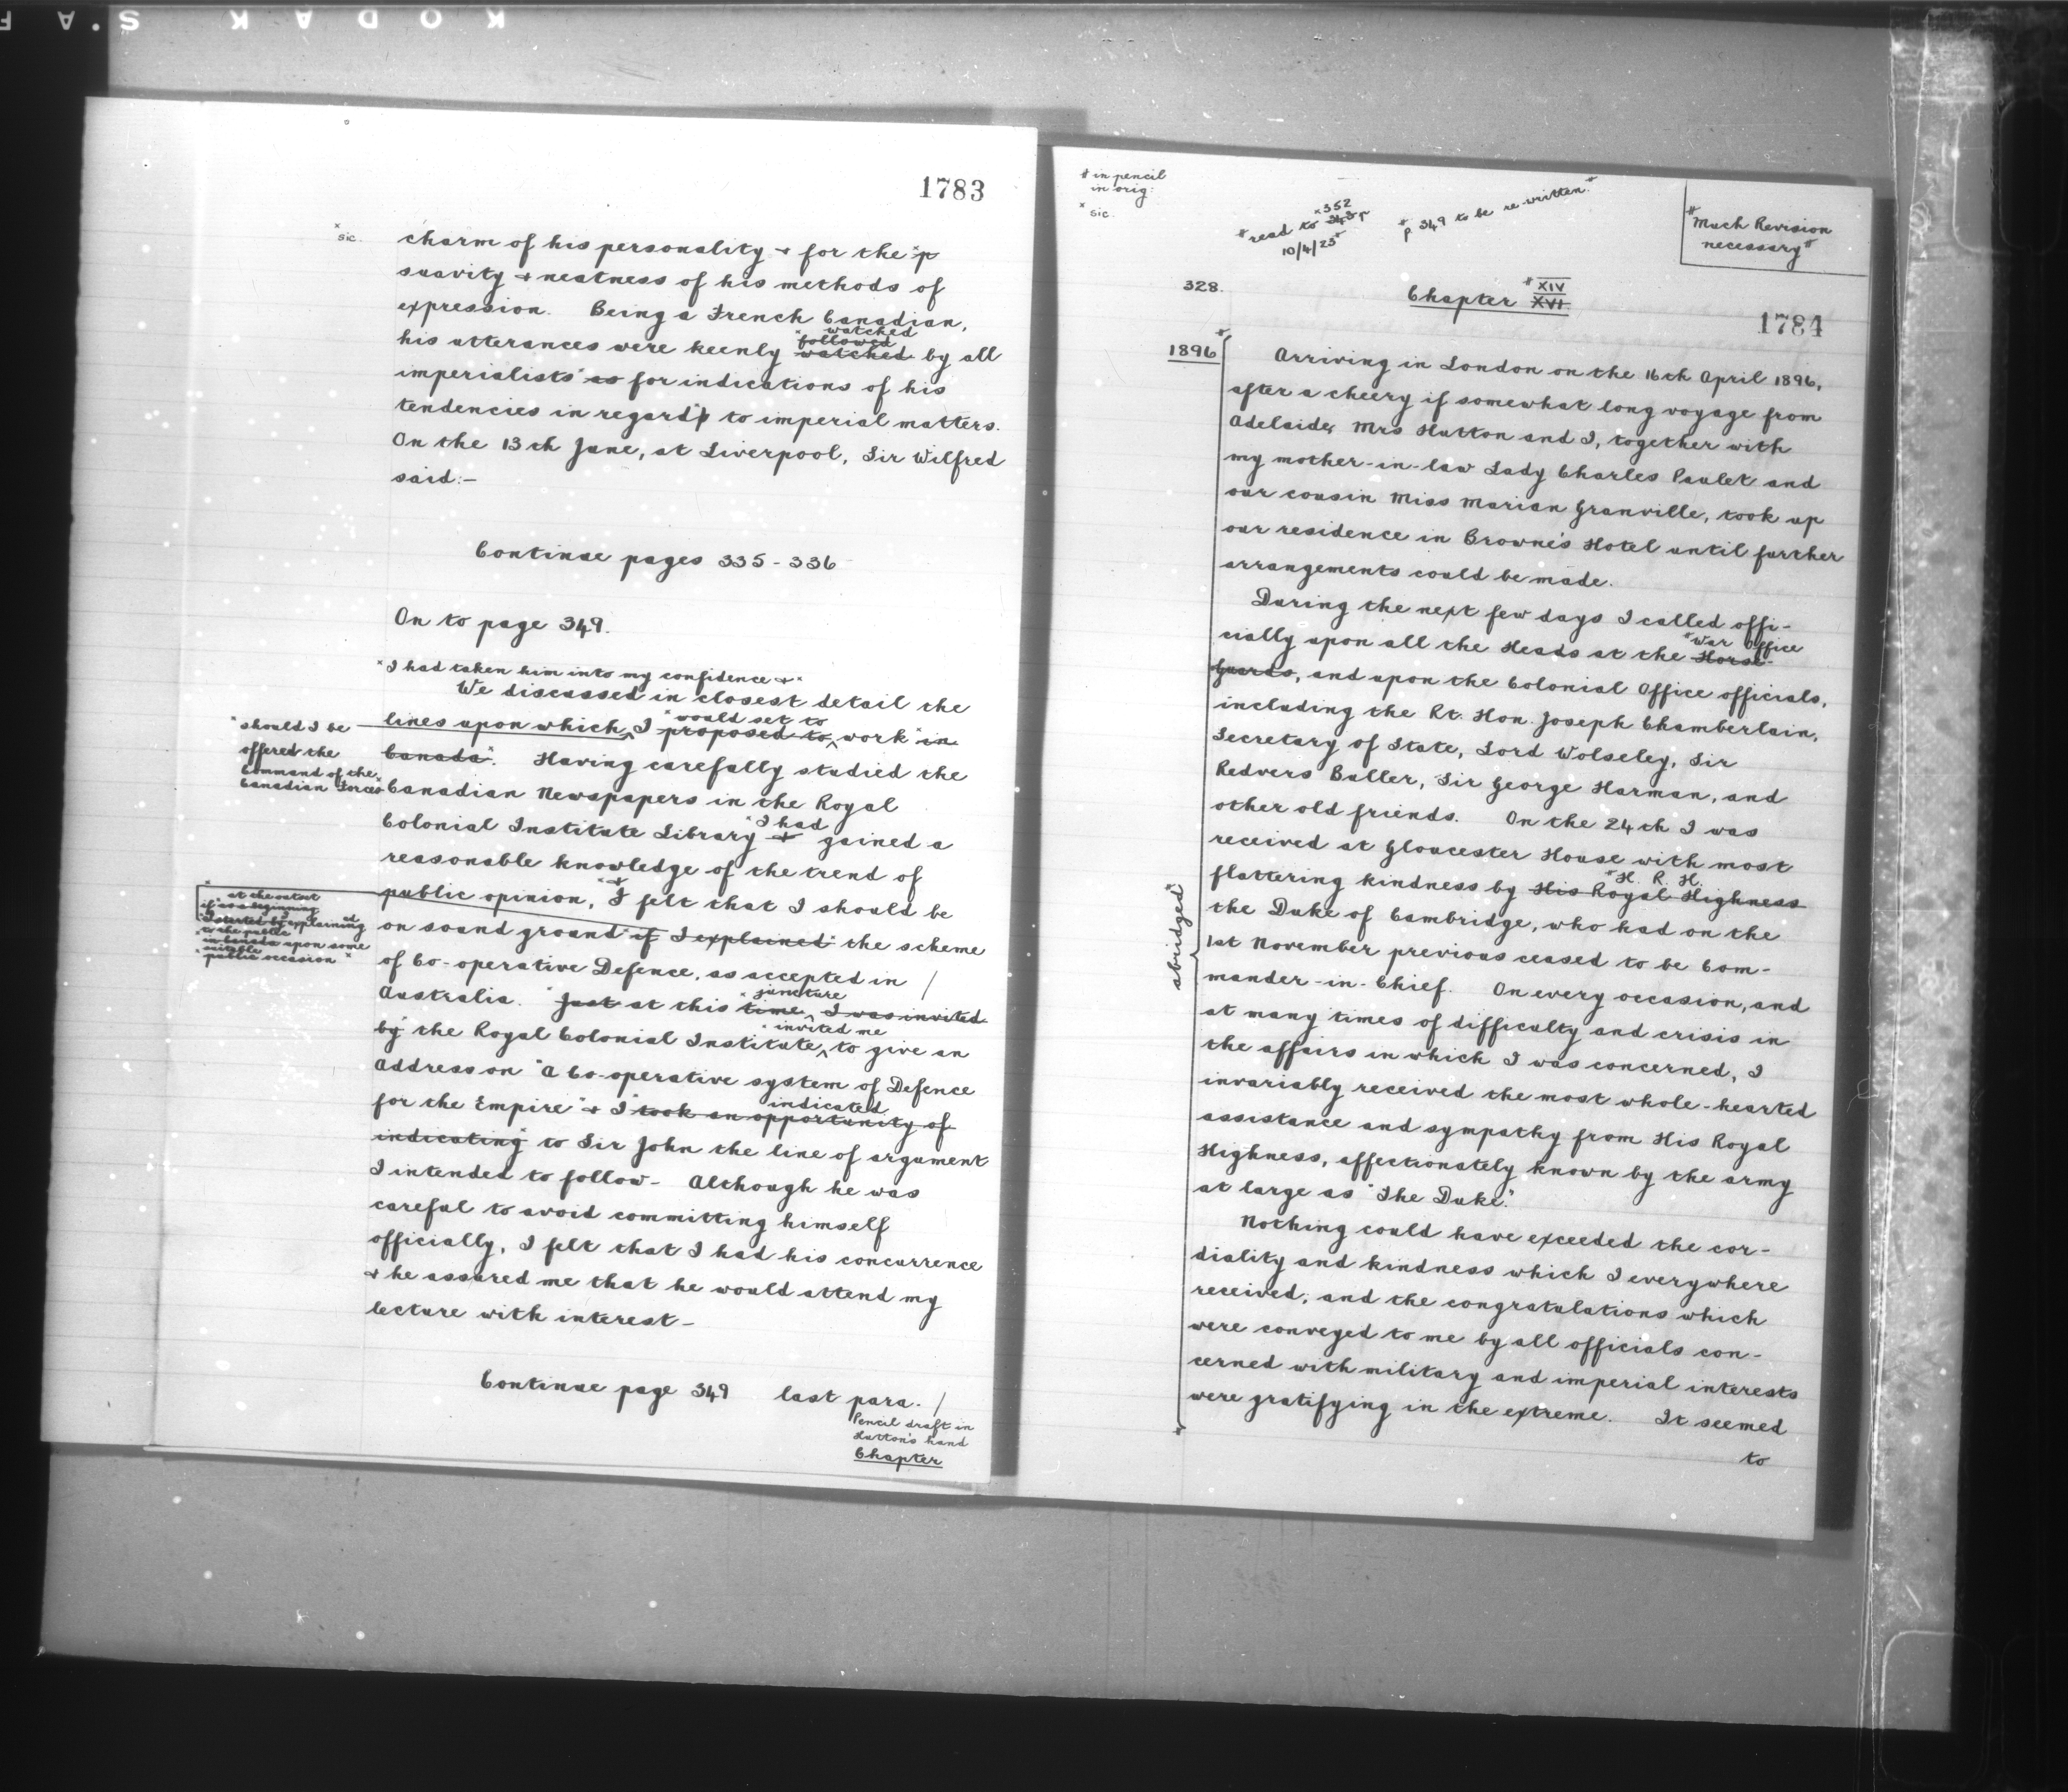 KODAK S.A F
1783
x
sic.
charm of his personality + for the xp
suavity + neatness of his methods of
expression. Being a French Canadian,
watched
followed
his utterances were keenly watched by all
imperialists as for indications of his
tendencies in regard to imperial matters.
On the 13th June, at Liverpool, Sir Wilfred
said:-
Continue pages 335-336
On to page 349.
x I had taken him into my confidence + x
We discussed in closest detail the
would set to
lines upon which, I proposed to, work "in
Canada". Having carefully studied the
x should I be
offered the
Command of the
Canadian Forces x
Canadian Newspapers in the Royal
I had
Colonial Institute Library + gained a
reasonable knowledge of the trend of
+
public opinion, I felt that I should be
on sound ground if I explained the scheme
at the outset
if as a beginning
I started by explaining
to the public
in Canada upon some
suitable
public occasion x
of Co-operative Defence, as accepted in /
juncture
Australia. Just at this time, I was invited
invited me
by the Royal Colonial Institute, to give an
Address on "A Co-operative system of Defence
indicated
for the Empire" + I took an opportunity of
indicating to Sir John the line of argument
I intended to follow- Although he was
careful to avoid committing himself
officially, I felt that I had his concurrence
+ he assured me that he would attend my
lecture with interest-
Continue page 349 last para. /
Pencil draft in
Hutton's hand
Chapter
# in pencil
in orig:
x sic.
x 352
# read to 343
10/4/23 #
# p 349 to be re written. #
# Much Revision
necessary #
328.
# XIV
Chapter XVI
1784
1896
Arriving in London on the 16th April 1896,
after a cheery if somewhat long voyage from
Adelaide, Mrs Hutton and I, together with
my mother-in-law Lady Charles Paulet and
our cousin Miss Marian Granville, took up
our residence in Browne's Hotel until further
arrangements could be made.
During the next few days I called offi-
# War Office
cially upon all the Heads at the Horse
Guards, and upon the Colonial Office officials,
including the Rt. Hon. Joseph Chamberlain,
Secretary of State, Lord Wolseley, Sir
Redvers Buller, Sir George Harman, and
other old friends. On the 24th I was
received at Gloucester House with most
# H. R. H.
flattering kindness by His Royal Highness
the Duke of Cambridge, who had on the
1st November previous ceased to be Com-
mander-in-Chief. On every occasion, and
at many times of difficulty and crisis in
the affairs in which I was concerned, I
invariably received the most whole-hearted
assistance and sympathy from His Royal
Highness, affectionately known by the army
at large as "The Duke."
"abridged"
Nothing could have exceeded the cor-
diality and kindness which I everywhere
received, and the congratulations which
were conveyed to me by all officials con-
cerned with military and imperial interests
were gratifying in the extreme. It seemed
to